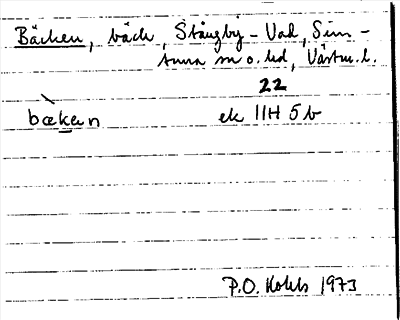 Bäcken, bäck, Stångby - Vad, Sim-
tuna sn o. hd, Västm. l.
22
bække̲n ek 11H 5b
P.O. Kohls 1973